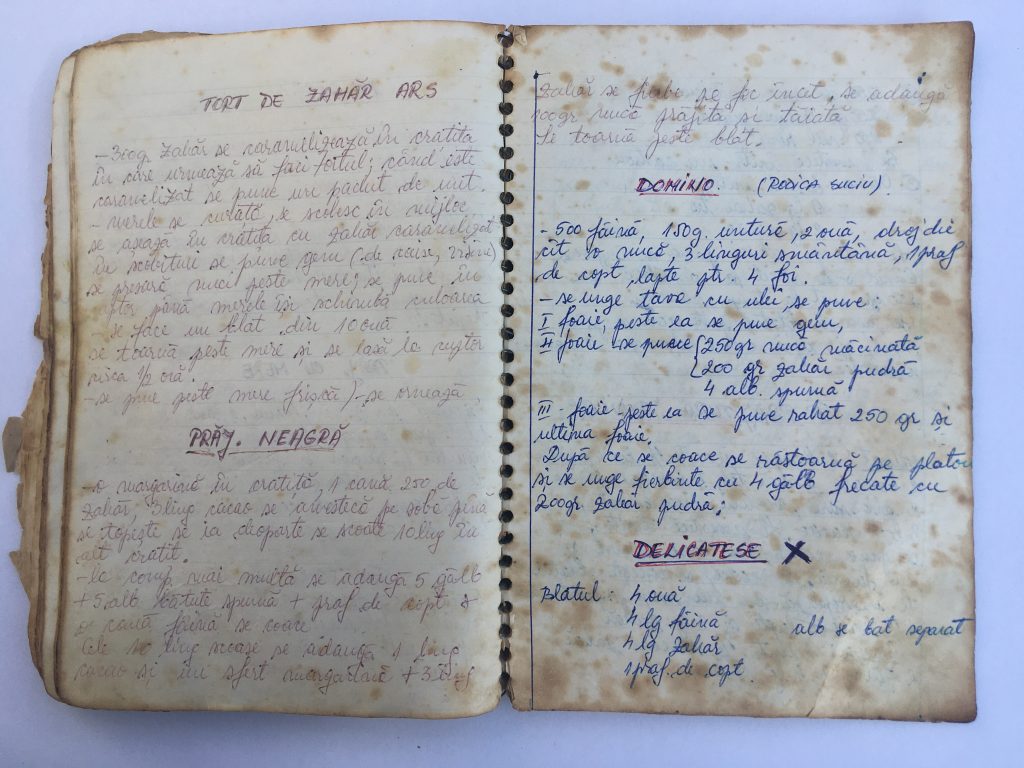 TORT DE ZAHĂR ARS
- 300gr zahăr se caramelizează în cratița
în care urmează să faci tortul; când este
caramelizat se pune un pachet de unt.
- merele se curăță, se scobesc în mijloc
se așează în cratița cu zahăr caramelizat
În scobituri se pune gem (de caise, vișine)
se presară nuci peste mere; se pune în
până merele își schimbă culoarea
- se face un blat din 10 ouă
se toarnă peste mere și se lasă la cuptor
1/2 oră.
- se pune peste mere frișcă) - se ornează
PRĂJ. NEAGRĂ
- o margarină în cratiță, 1 cană 250 de
zahăr, 3 ling cacao se amestecă pe sobă până
se topește se ia deoparte se scoate 10 ling în
alt cratit.
- la comp mai multă se adaugă 5 gălb
+ 5 alb bătute spumă + praf de copt +
o cană făină se coace
Cele 10 ling scoase se adaugă 1 ling
cacao și un sfert margarină + 3 ling
zahăr se fierbe pe foc încit, se adaugă
100gr nucă prăjită și tăiată
Se toarnă peste blat.
DOMINO (RODICA SUCIU)
- 500 făină, 150g. untură, 2 ouă, drojdie
cît o nucă, 3 linguri smântână, 1 praf
de copt, lapte ptr. 4 foi.
- se unge tava cu ulei, se pune:
I foaie, peste ea se pune gem,
II foaie se pune {250gr nucă măcinată
200 gr zahăr pudră
4 alb. spumă
III. foaie peste ea se pune rahat 250 gr și
ultima foaie.
După ce se coace se răstoarnă pe platou
și se unge fierbinte cu 4 gălb frecate cu
200gr zahăr pudră;
DELICATESE X
Blatul: 4 ouă
4 lg făină alb se bat separat
4 lg zahăr
1 praf. de copt